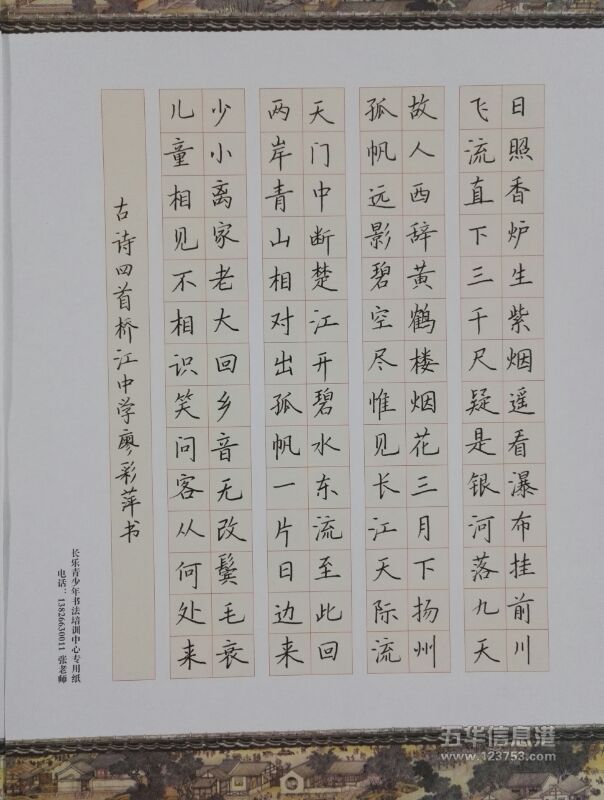 日照香炉生紫烟遥看瀑布挂前川
飞流直下三千尺疑是银河落九天
故人西辞黄鹤楼烟花三月下扬州
孤帆远影碧空尽惟见长江天际流
天门中断楚江开碧水东流至此回
两岸青山相对出孤帆一片日边来
少小离家老大回乡音无改鬓毛衰
儿童相见不相识笑问客从何处来
古诗四首桥江中学廖彩萍书
长乐青少年书法培训中心专用纸
电话：13826630011 张老师
五华信息港
www.123753.com